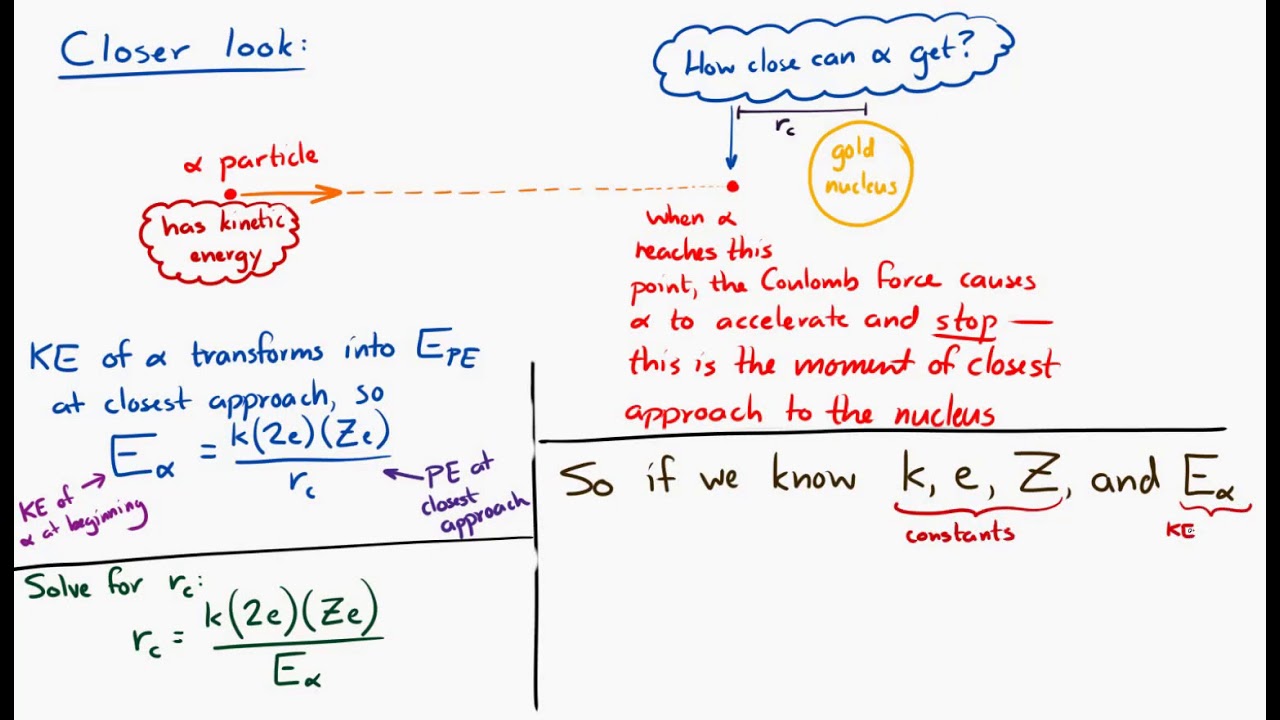 Closer look:
How close can α get?
r_c
gold
nucleus
α particle
has kinetic
energy
when α
reaches this
point, the Coulomb force causes
α to accelerate and stop —
this is the moment of closest
approach to the nucleus
KE of α transforms into E_PE
at closest approach, so
E_α = k(2e)(Ze) / r_c
KE of
α at beginning
PE at
closest
approach
Solve for r_c:
r_c = k(2e)(Ze) / E_α
So if we know k, e, Z, and E_α
constants
KE